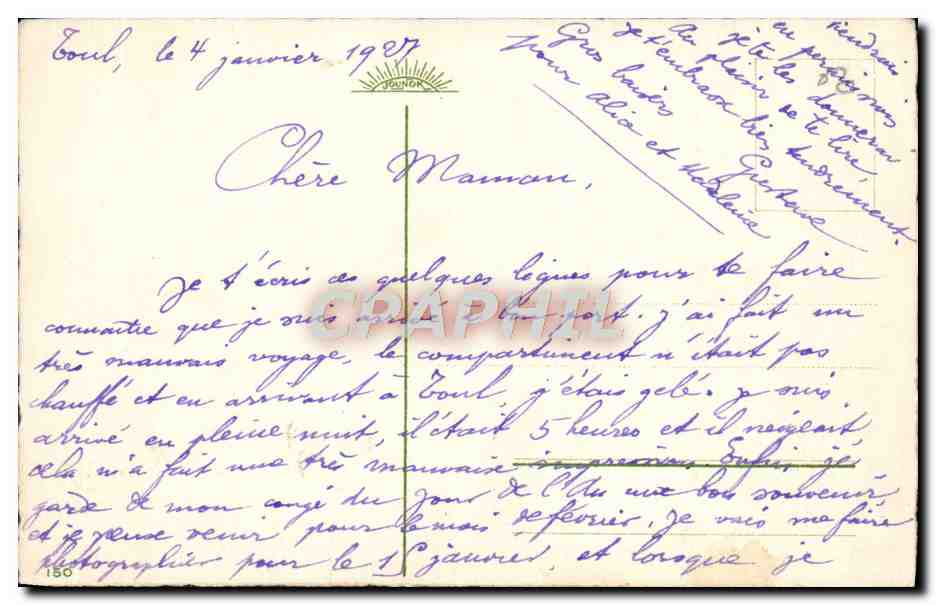 Toul, le 4 janvier 1927
JOUNOK
Chère Maman,
Je t'écris ces quelques lignes pour te faire
connaître que je suis arrivé à bon port. J'ai fait un
très mauvais voyage, le compartiment n'était pas
chauffé et en arrivant à Toul, j'étais gelé. Je suis
arrivé en pleine nuit, il était 5 heures et il neigeait
cela m'a fait une très mauvaise impression. Enfin, je
garde de mon congé du Jour de l'An un bon souvenir
et je peux venir pour le mois de février. Je vais me faire
photographier pour le 15 janvier, et lorsque je
viendrai
en permission
je te les donnerai
Au plaisir de te lire
Je t'embrasse très tendrement.
Gros baisers Gustave
pour Alice et Madeleine
CPAPHIL
150